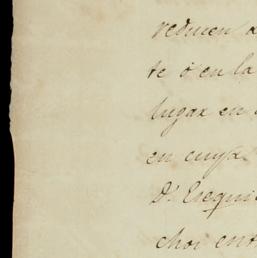 reducen a
te ó en la
lugar en
en cuya
Dn Esequi
choi ent